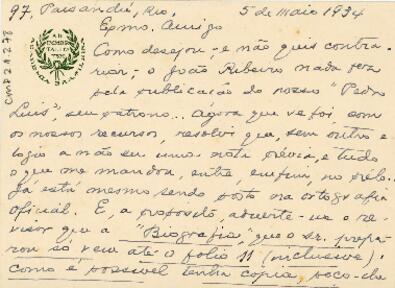 97, Paisandú, Rio, 5 de Maio 1934
Exmo. Amigo
Como desejou, e não quis contra-
riar, o João Ribeiro nada fez
pela publicação do nosso "Pedro
Luis", seu patrono... Agora que ve foi, com
os nossos recursos, resolvi que, sem outro e-
logio a não ser uma nota prévia, e tudo
o que me mandou, entre, enfim, no prélo.
Já está mesmo sendo posto na ortografia
oficial. E, a proposito, adverte-me o re-
visor que a "Biografia", que o sr. prepa-
rou só vem até o folio 11 (inclusive).
Como é possivel tenha copia, peço-lhe
CMP 2.1.2.78